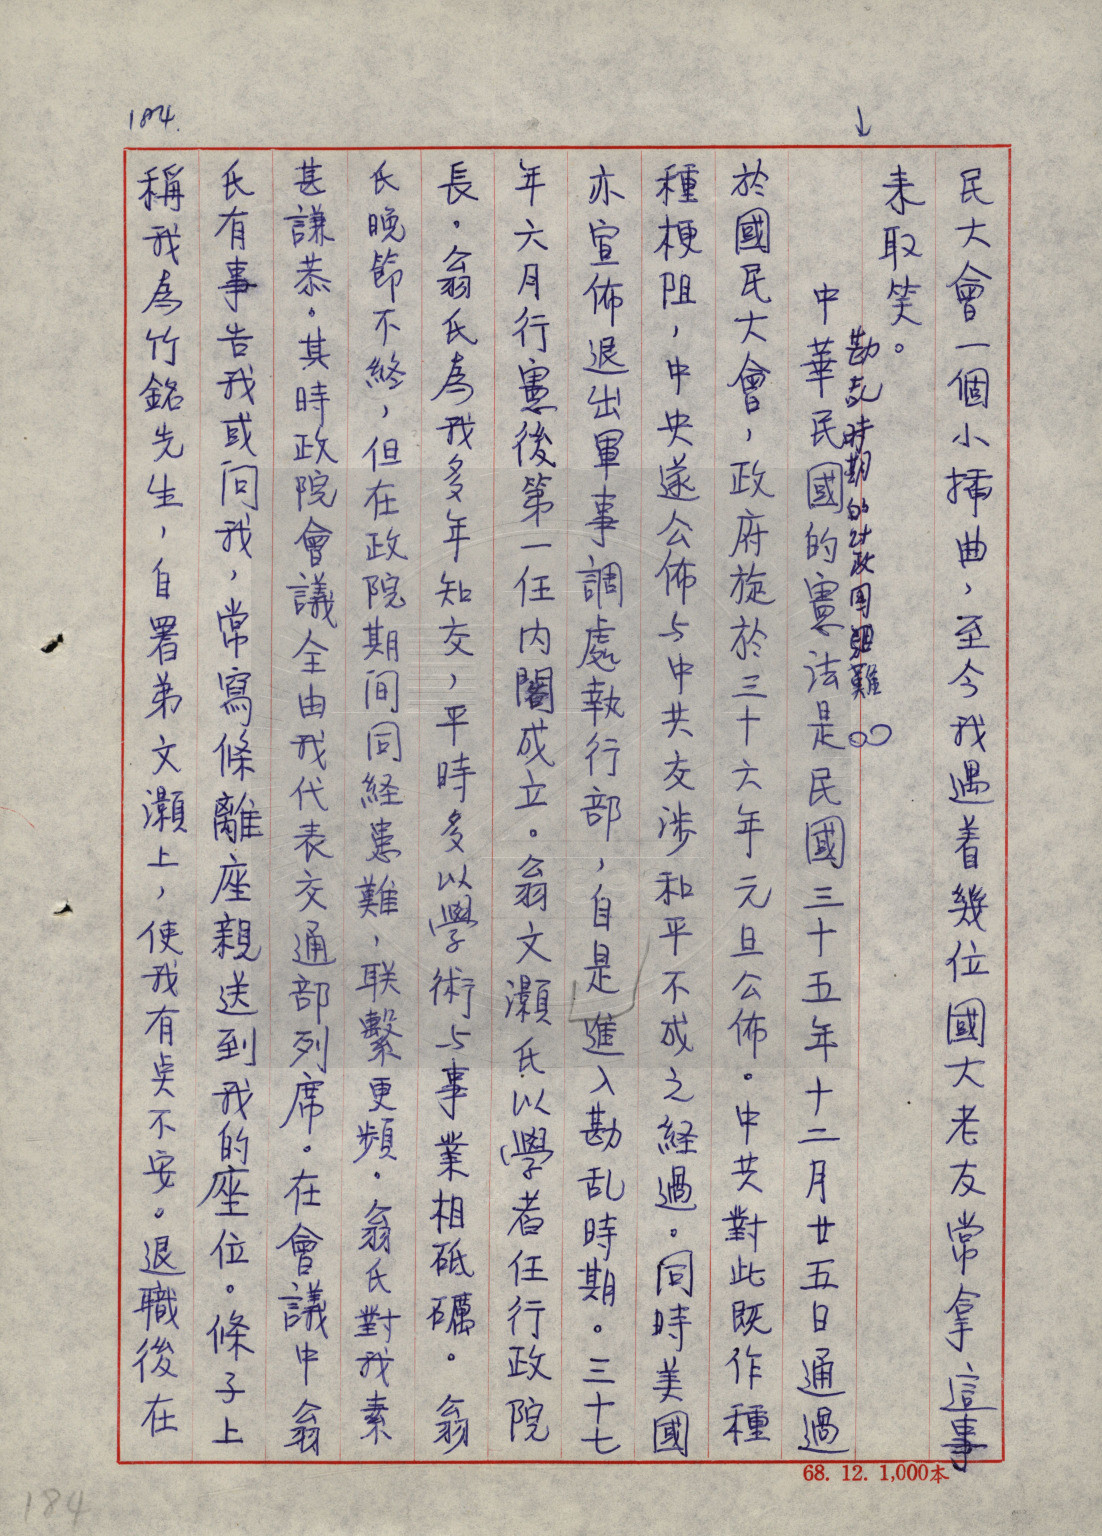 184.
民大會一個小插曲，至今我遇着幾位國大老友常拿這事
来取笑。
勘乱時期的財政困難
中華民國的憲法是民國三十五年十二月廿五日通過
於國民大會，政府旋於三十六年元旦公佈。中共對此既作種
種梗阻，中央遂公佈与中共交涉和平不成之経過。同時美國
亦宣佈退出軍事調處執行部，自是進入勘乱時期。三十七
年六月行憲後第一任内閣成立。翁文灝氏以學者任行政院
長。翁氏為我多年知交，平時多以學術与事業相砥礪。翁
氏晚節不終，但在政院期间同経患難，联繫更頻。翁氏對我素
甚謙恭。其時政院會議全由我代表交通部列席。在會議中翁
氏有事告我或问我，常寫條離座親送到我的座位。條子上
稱我為竹銘先生，自署弟文灝上，使我有吳不安。退職後在
68. 12. 1,000本
184